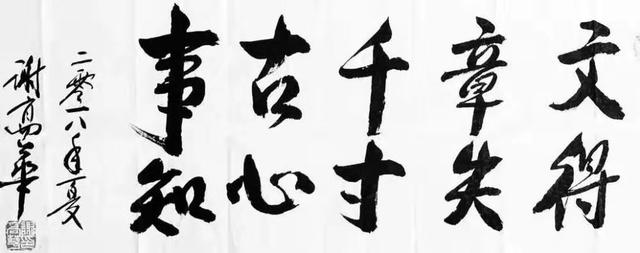 文章千古事
得失寸心知
二零一八年夏
谢高華